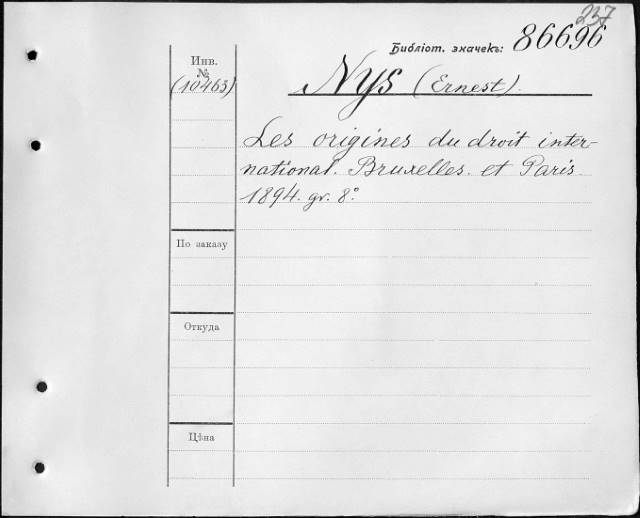 237
Библіот. значекъ: 86696
Инв.
№
(10463)
Nys (Ernest).
Les origines du droit inter-
national. Bruxelles. et Paris.
1894. gr. 8º.
По заказу
Откуда
Цѣна